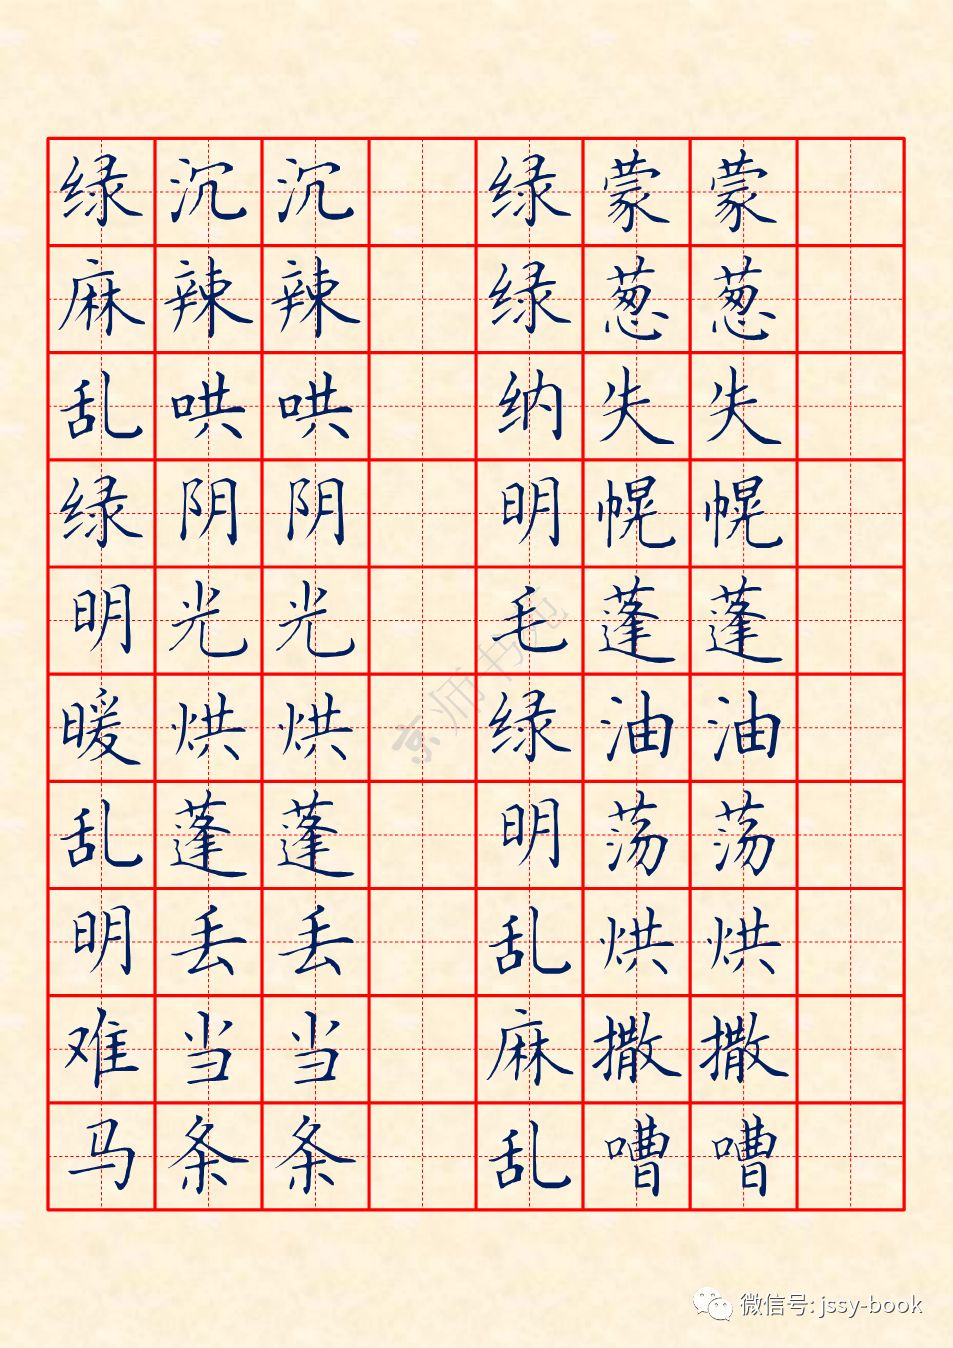 绿沉沉 绿蒙蒙
麻辣辣 绿葱葱
乱哄哄 纳失失
绿阴阴 明幌幌
明光光 毛蓬蓬
暖烘烘 绿油油
乱蓬蓬 明荡荡
明丢丢 乱烘烘
难当当 麻撒撒
马条条 乱嘈嘈
京师书苑
微信号: jssy-book